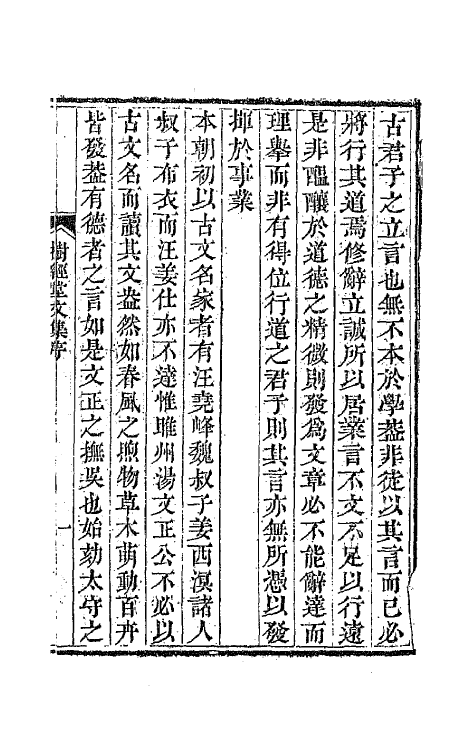 古君子之立言也無不本於學葢非徒以其言而已必
將行其道焉修辭立誠所以居業言不文不足以行遠
是非醖釀於道德之精微則發爲文章必不能辭達而
理舉而非有得位行道之君子則其言亦無所憑以發
揮於事業
本朝初以古文名家者有汪堯峰魏叔子姜西溟諸人
叔子布衣而汪姜仕亦不達惟睢州湯文正公不必以
古文名而讀其文盎然如春風之煦物草木萌動百卉
皆發葢有德者之言如是文正之撫吳也始劾太守之
樹經堂文集序
一